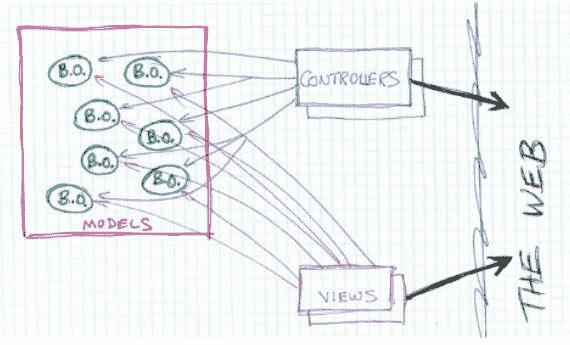 B.O.
B.O.
B.O.
B.O.
B.O.
B.O.
B.O.
MODELS
CONTROLLERS
VIEWS
THE WEB